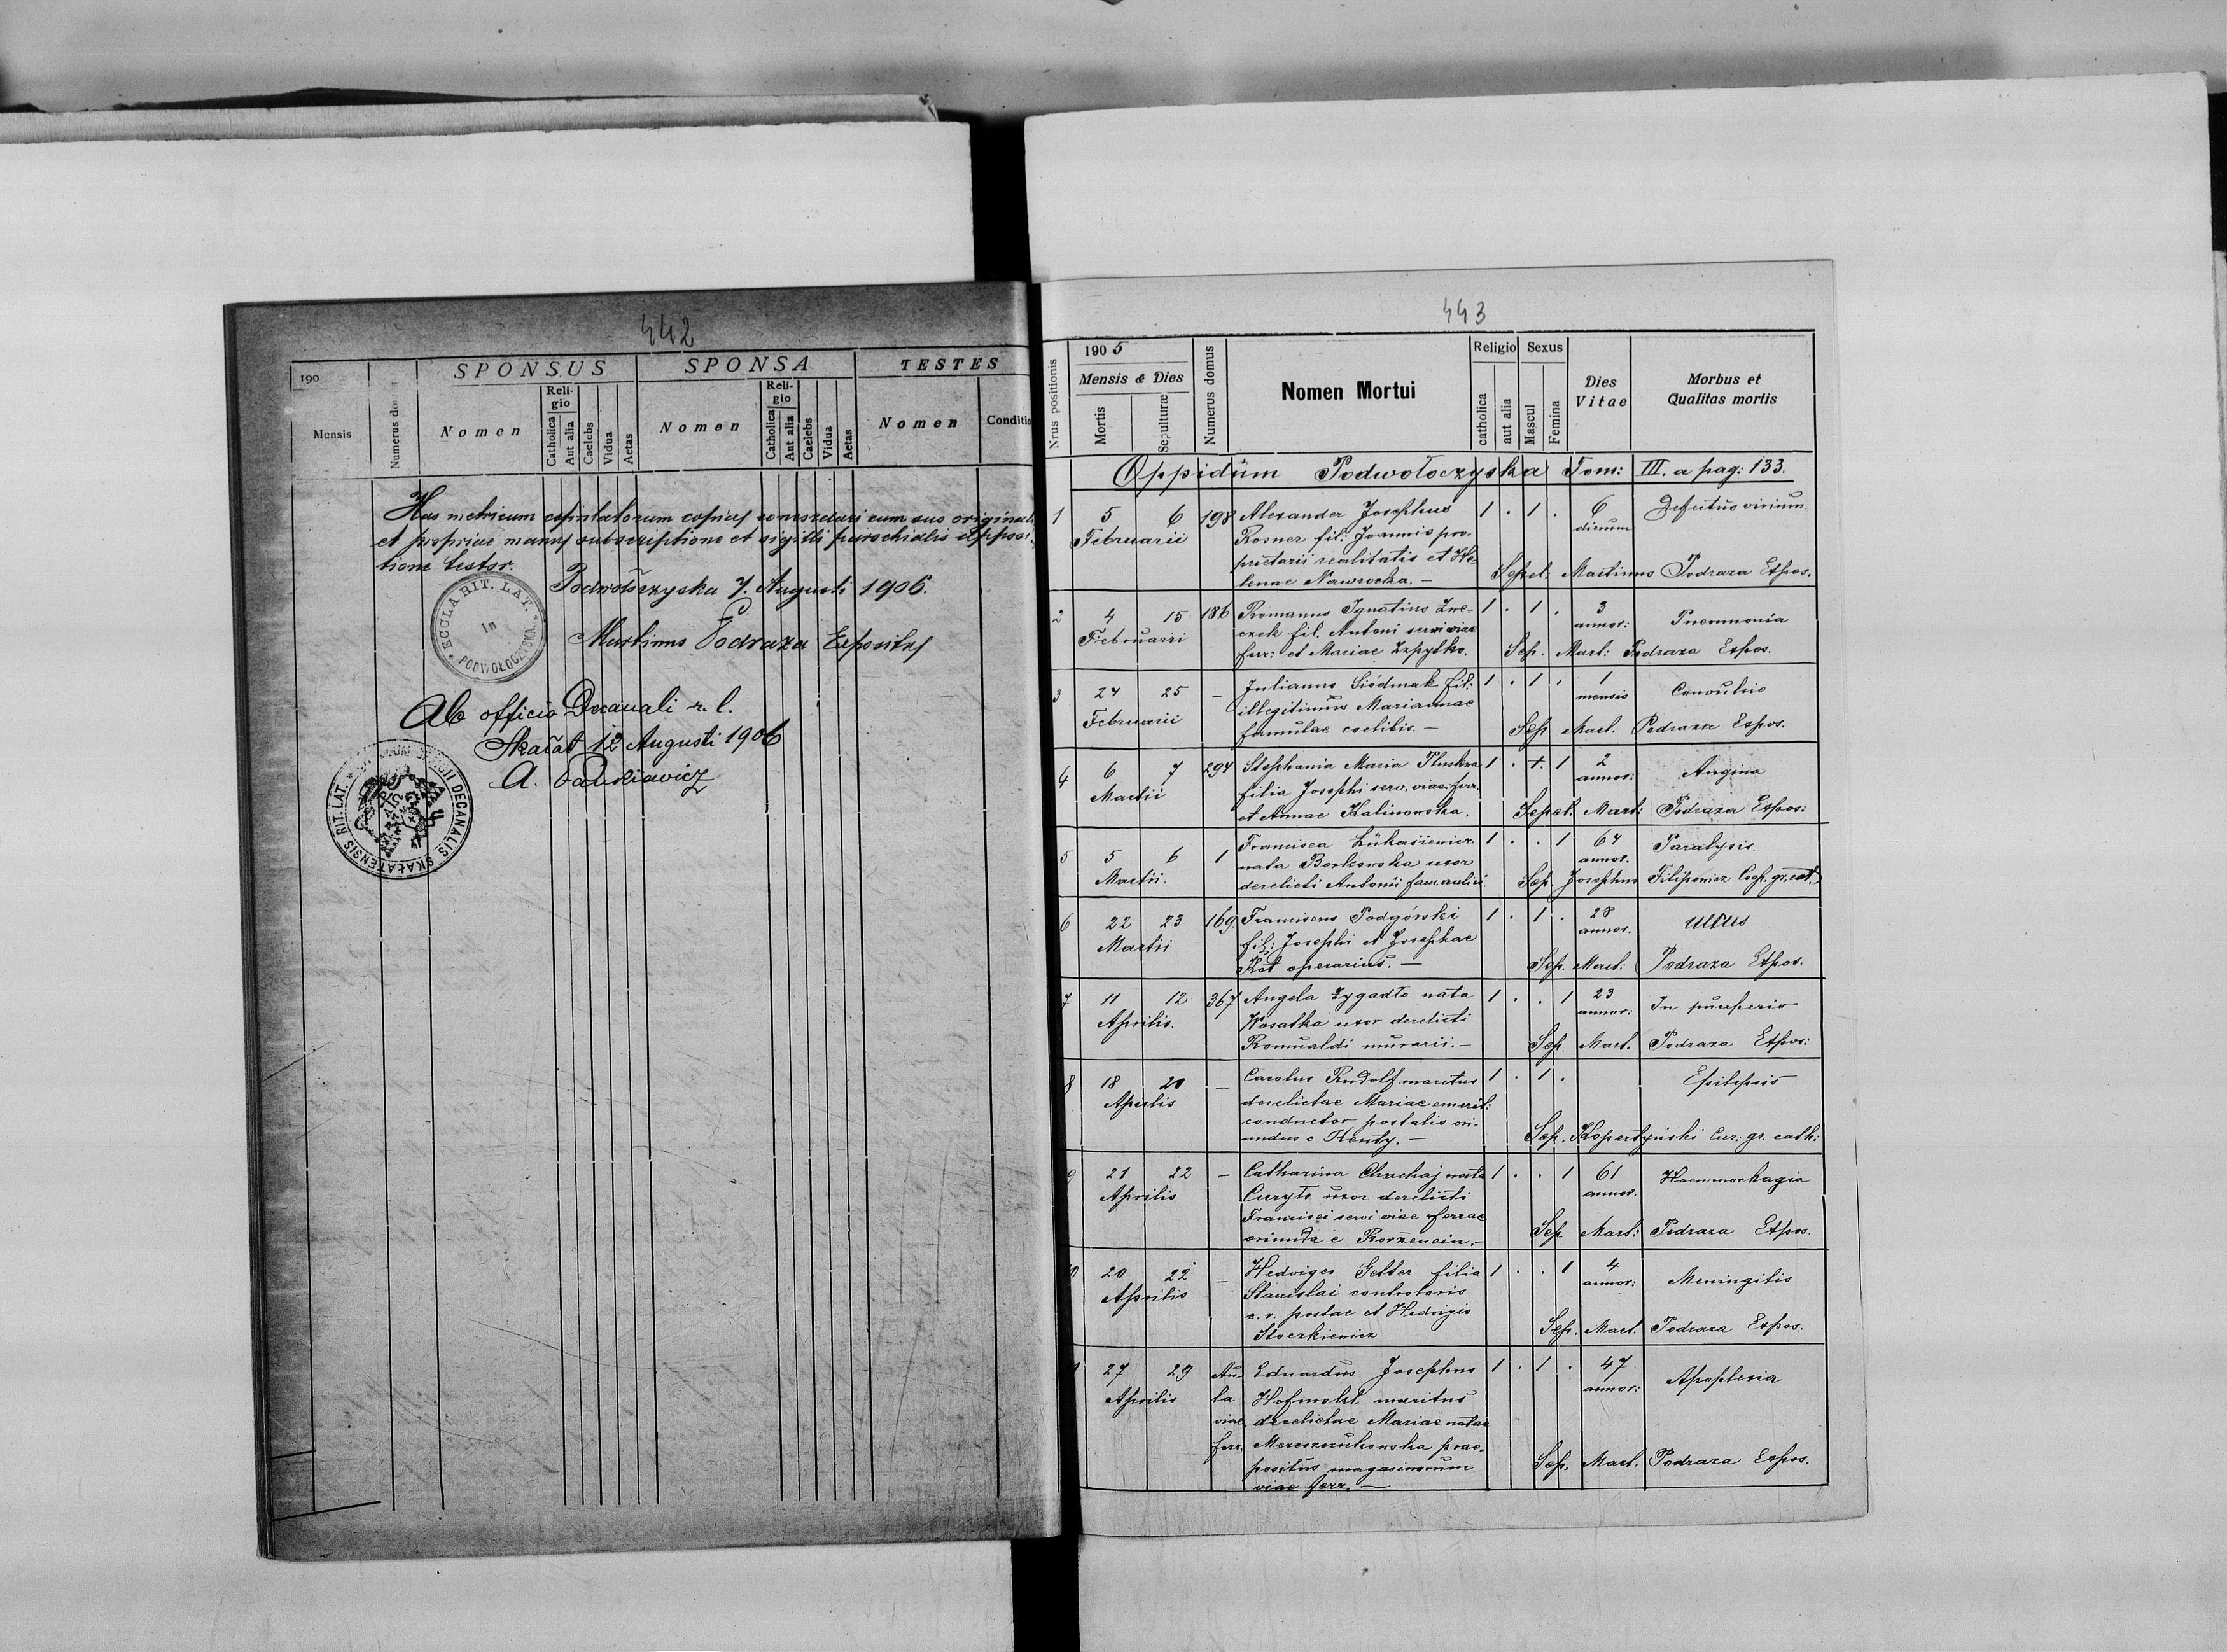 442
190
Mensis
Numerus do
SPONSUS
Nomen
Religio
Catholica
Aut alia
Caelebs
Vidua
Aetas
SPONSA
Nomen
Religio
Catholica
Aut alia
Caelebs
Vidua
Aetas
TESTES
Nomen
Conditio
Has metricum copulatorum copias concordari cum suo originali
et propriae manus subscriptione et sigilli parochialis apposi-
tione testor.
Podwołoczyska 7. Augusti 1906.
Martinus Podraza Expositus
ECCLA RIT. LAT.
in
PODWOŁOCZYSKA
Ab officio Decanali r. l.
Skałat 12 Augusti 1906
A.
DECANALIS SKAŁATENSIS RIT. LAT.
443
Nrus positionis
1905
Mensis & Dies
Mortis
Sepulturæ
Numerus domus
Nomen Mortui
Religio
catholica
aut alia
Sexus
Mascul
Femina
Dies Vitae
Morbus et
Qualitas mortis
Oppidum Podwołoczyska Tom: III. a pag: 133.
1 5 6 198 Alexander Josephus 1 . 1 . 6 Defectus virium
Februarii Rosner fil: Joannis pro- dierum
prietarii realitatis et He-
lenae Nawrocka. — Sepel. Martinus Podraza Expos.
2 4 15 186 Romanus Ignatius Zwe- 1 . 1 . 3 Pneumonia
Februarii czek fil. Antoni servi viae annor:
ferr: et Mariae Szpytko. Sep. Mart: Podraza Expos.
3 24 25 – Julianus Siódmak fil: 1 . 1 . 1 Convulsio
Februarii illegitimus Mariannae mensis
famulae coelibis. — Sep Mart. Podraza Expos.
4 6 7 294 Stephania Maria Pluskwa 1 . 1 . 1 2 Angina
Martii filia Josephi serv. viae ferr. annor:
et Annae Kalinowska. Sepel. Mart: Podraza Expos:
5 5 6 1 Francisca Łukasiewicz 1 . . 1 64 Paralysis
Martii. nata Borkowska uxor annor.
derelicti Antonii fam. aulici. Sep. Josephus Filipowicz Coop. gr. cat.
6 22 23 169. Franciscus Podgórski 1 . 1 . 28
Martii fil: Josephi et Josephae annor.
Kot operarius. — Sep. Mart: Podraza Expos.
7 11 12 367 Angela Zygadło nata 1 . . 1 23 In puerperio
Aprilis. Kosatka uxor derelicti annor:
Romualdi murarii. — Sep. Mart. Podraza Expos:
8 18 20 – Carolus Rudolf maritus 1 . 1 . Epilepsis
Aprilis derelictae Mariae emerit:
conductor postalis ori-
undus e Kenty. — Sep. Kopertyński Cur: gr. cath:
9 21 22 – Catharina Chuchaj nata 1 . . 1 61 Haemorrhagia
Aprilis Curyło uxor derelicti annor.
Francisci servi viae ferrae
oriunda e Korzenein. — Sep. Mart: Podraza Expos.
20 22 – Hedviges Getter filia 1 . . 1 4 Meningitis
Aprilis Stanislai controloris annor:
c. r. postae et Hedvigis
Stoczkiewicz Sep. Mart. Podraza Expos.
27 29 Au- Eduardus Josephus 1 . 1 . 47 Apoplexia
Aprilis la Hofmokl maritus annor:
viae derelictae Mariae natae
ferr. Mereszczukowska prae-
positus magasinorum Sep. Mart. Podraza Expos.
viae ferr. —